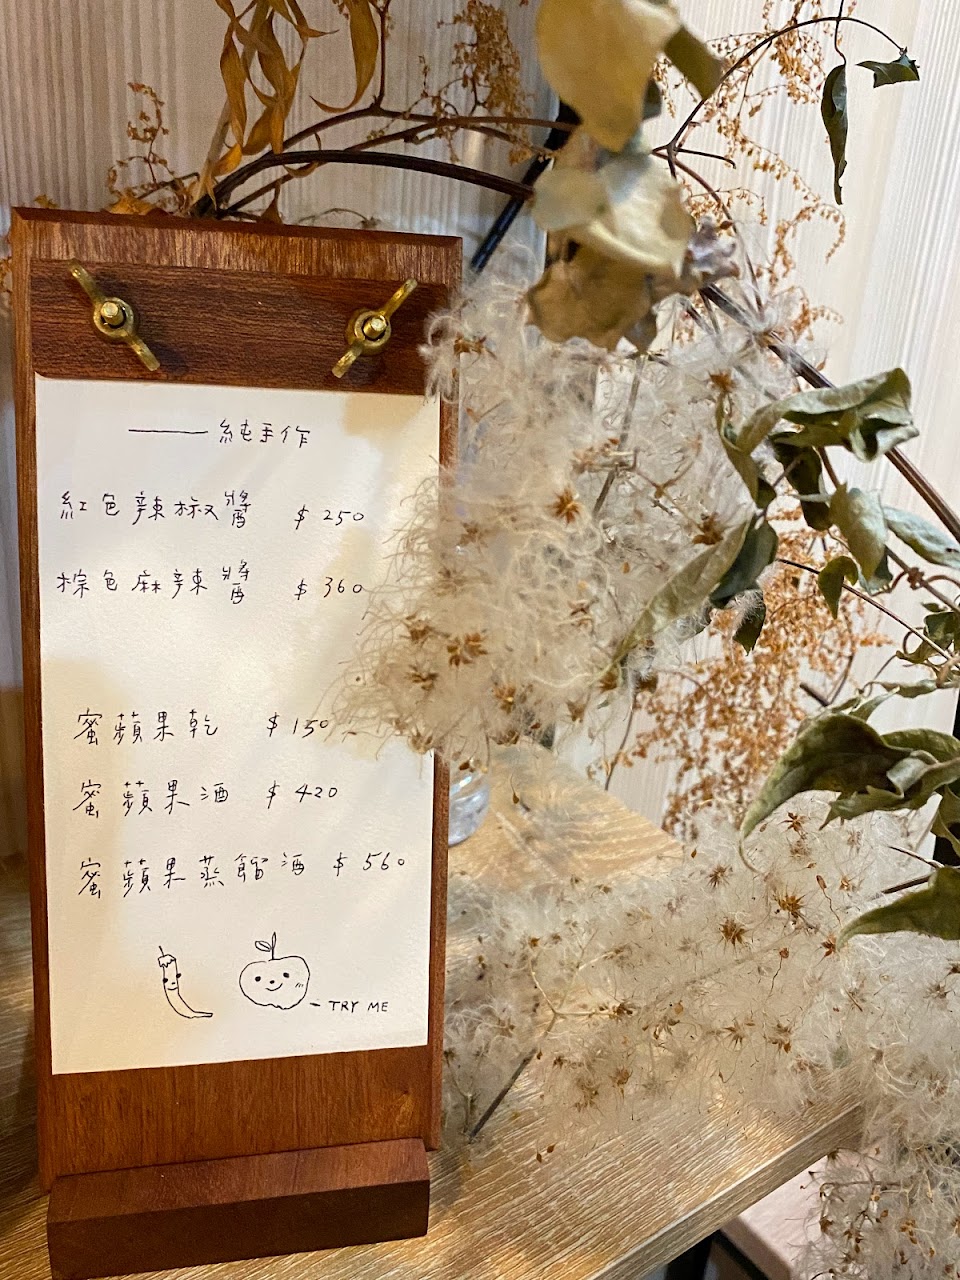 —— 純手作
紅色辣椒醬 $250
棕色麻辣醬 $360
蜜蘋果乾 $150
蜜蘋果酒 $420
蜜蘋果蒸餾酒 $560
TRY ME